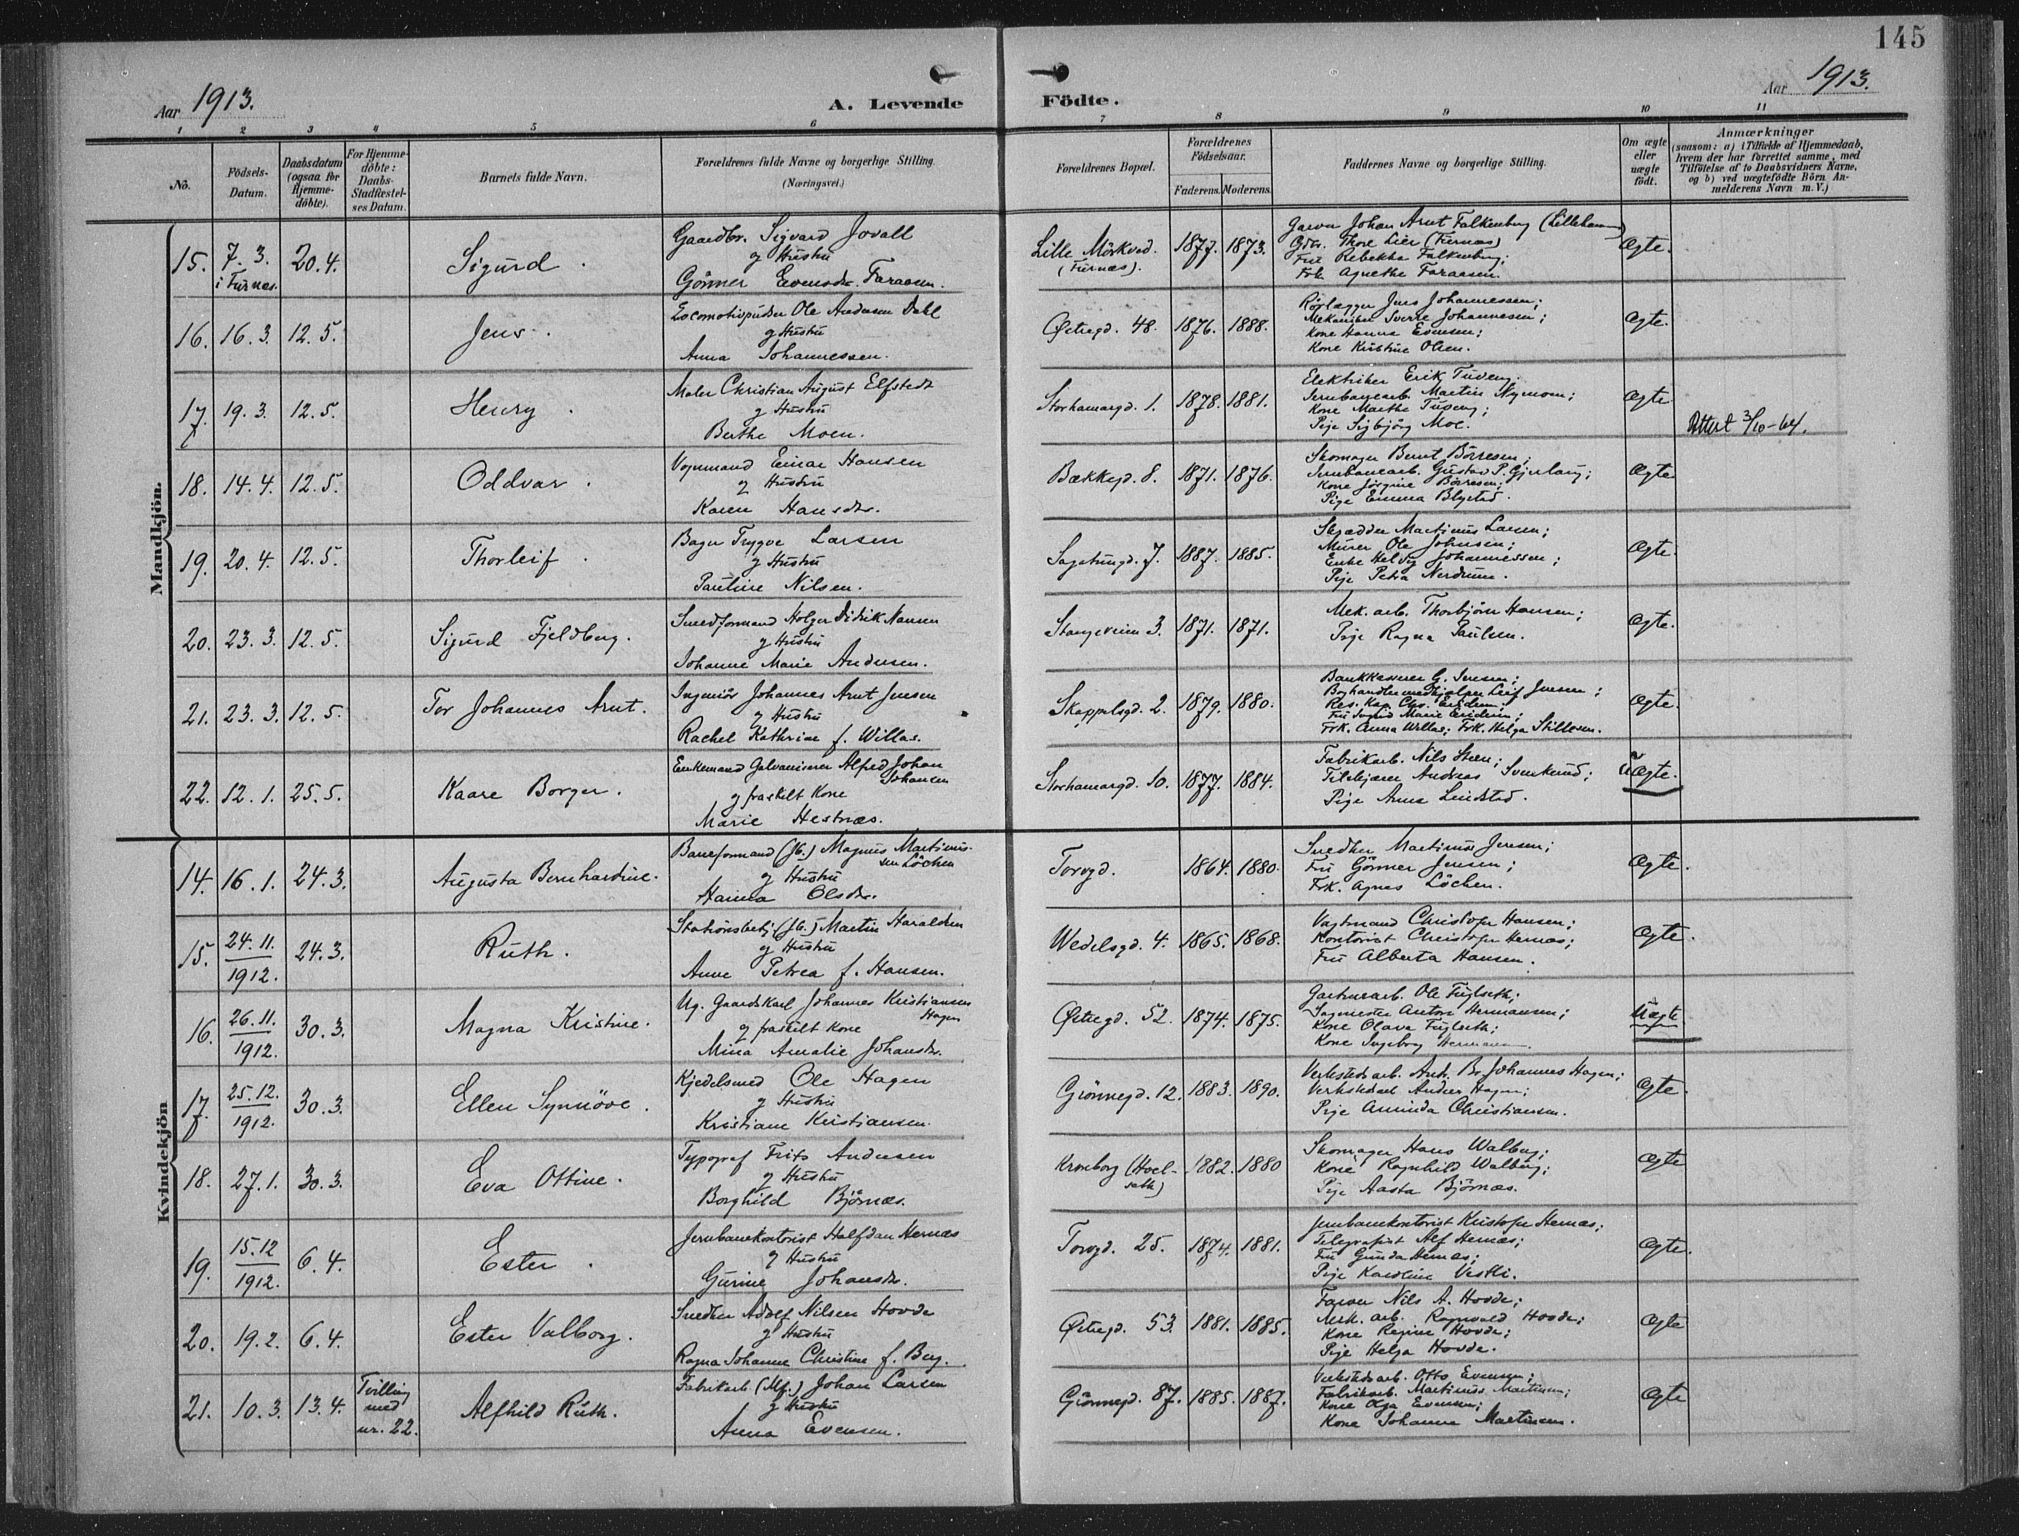 145
Aar 1913.
A. Levende Födte.
Aar 1913.
1 2 3 4 5 6 7 8 9 10 11
No.
Födsels-Datum.
Daabsdatum (ogsaa for Hjemmedöbte).
For Hjemmedöbte: Daabs-Stadfæstelses Datum.
Barnets fulde Navn.
Forældrenes fulde Navne og borgerlige Stilling.
(Næringsvei.)
Forældrenes Bopæl.
Forældrenes Födselsaar.
Faderens. Moderens.
Faddernes Navne og borgerlige Stilling.
Om ægte eller uægte födt.
Anmærkninger
(saasom: a) i Tilfælde af Hjemmedaab, hvem der har forrettet samme, med Tilföielse af to Daabsvidners Navne, og b) ved uægtefödte Börn Anmelderens Navn m. V.)
Mandkjön.
15. 7. 3. i Furnæs. 20. 4. Sigurd.
Gaardbr. Sigvard Jovall
og Hustru
Gönner Evensdr. Faraasen.
Lille Mörkved (Furnæs). 1877. 1873.
Garver Johan Arnt Falkenberg (Lillehammer)
Gbr. Thore Lier (Furnæs)
Fru Rebekka Falkenberg;
Frk. Agnethe Faraasen.
Ægte.
16. 16. 3. 12. 5. Jens.
Locomotivpudser Ole Andersen Dahl
og Hustru
Anna Johannessen.
Østregd. 48. 1876. 1888.
Rörlægger Jens Johannessen;
Mekaniker Sverre Johannessen;
Kone Hanna Evensen;
Kone Kristine Olsen.
Ægte.
17. 19. 3. 12. 5. Henry.
Maler Christian August Elfstedt
og Hustru
Berthe Moen.
Storhamargd. 1. 1878. 1881.
Elektriker Erik Tuveng;
Jernbanearb. Martin Nymoen;
Kone Marthe Tuveng;
Pige Sigbjörg Moe.
Ægte
Attest 3/10-64.
18. 14. 4. 12. 5. Oddvar.
Vognmand Einar Hansen
og Hustru
Karen Hansdr.
Bækkegd. 8. 1871. 1876.
Skomager Bernt Börresen;
Jernbanearb. Gustav P. Gjerlaug;
Kone Jörgine Börresen;
Pige Emma Blystad.
Ægte.
19. 20. 4. 12. 5. Thorleif.
Bager Trygve Larsen
og Hustru
Pauline Nilsen.
Sagatungd. 7. 1887. 1885.
Skrædder Martinus Larsen;
Murer Ole Johnsen;
Enke Helvig Johannessen;
Pige Petra Nerdrum.
Ægte.
20. 23. 3. 12. 5. Sigurd Fjeldberg.
Smedformand Holger Didrik Hansen
og Hustru
Johanne Marie Andersen.
Stangeveien 3. 1871. 1871.
Mek. arb. Thorbjörn Hansen;
Pige Ragna Paulsen.
Ægte.
21. 23. 3. 12. 5. Tor Johannes Arnt.
Ingeniör Johannes Arnt Jensen
og Hustru
Rachel Kathrine f. Willas.
Skappelsgd. 2. 1879. 1880.
Bankkasserer G. Jensen;
Boghandlermedhjelper Leif Jensen;
Res. Kap. Chr. Eriksen;
Fru Sigrid Marie Eriksen;
Frk. Anna Willas; Frk. Helga Stillesen.
Ægte.
22. 12. 1. 25. 5. Kaare Borger.
Enkemand Galvaniserer Alfred Johan Johansen
og fraskilt Kone
Marie Hestnæs.
Storhamargd. 10. 1877. 1884.
Fabrikarb. Nils Steen;
Andreas Svenkerud;
Pige Anna Lindstad.
Uægte.
Kvindekjön
14. 16. 1. 24. 3. Augusta Bernhardine.
Baneformand (Jb.) Magnus Martinussen Löchen
og Hustru
Hanna Olsdr.
Torvgd. 1864. 1880.
Snedker Martinus Jensen;
Fru Gönner Jensen;
Frk. Agnes Löchen.
Ægte.
15. 24. 11. 1912. 24. 3. Ruth.
Stationsbetj. (Jb.) Martin Haraldsen
og Hustru
Anne Petrea f. Hansen.
Wedelsgd. 4. 1865. 1868.
Vagtmand Christofer Hansen;
Kontorist Christofer Hernæs;
Fru Alberta Hansen.
Ægte.
16. 26. 11. 1912. 30. 3. Magna Kristine.
Ug. Gaardskarl Johannes Kristiansen Hagen
og fraskilt Kone
Mina Amalie Johansdr.
Østregd. 52. 1874. 1875.
Gartnerarb. Ole Fuglseth;
Sagmester Anton Hermansen;
Kone Olava Fuglseth;
Kone Ingeborg Hermansen.
Uægte.
17. 25. 12. 1912. 30. 3. Ellen Synnöve.
Kjedelsmed Ole Hagen
og Hustru
Kristiane Kristiansen.
Grönnegd. 12. 1883. 1890.
Verkstedsarb. Andr. Br. Johannes Hagen;
Verkstedarb Anders Hagen;
Pige Aminda Christiansen.
Ægte.
18. 27. 1. 30. 3. Eva Ottine.
Typograf Frits Andersen
og Hustru
Borghild Björnæs.
Kronborg (Hoelseth) 1882. 1880
Skomager Hans Walberg;
Kone Ragnhild Walberg;
Pige Aasta Björnæs.
Ægte
19. 15. 12 1912. 6. 4. Ester.
Jernbanekontorist Halfdan Hernæs
og Hustru
Gurine Johansdr.
Torvgd. 25. 1874. 1881.
Jernbanekontorist Kristofer Hernæs;
Telegrafist Alf Hernæs;
Fru Gunda Hernæs;
Pige Karoline Vestli.
Ægte.
20. 19. 2. 6. 4. Ester Valborg.
Snedker Adolf Nilsen Hovde
og Hustru
Ragna Johanne Christine f. Berg.
Østregd. 53. 1881. 1885.
Farver Nils A. Hovde;
Mek. arb. Ragnvald Hovde;
Kone Regine Hovde;
Pige Helga Hovde.
Ægte
21. 10. 3. 13. 4. Tvilling med nr. 22. Alfhild Ruth.
Fabrikarb. (Mf.) Johan Larsen
og Hustru
Anna Evensen.
Grönnegd. 87. 1885. 1887.
Verkstedsarb. Otto Evensen;
Fabrikarb. Martinius Martinsen;
Kone Olga Evensen;
Kone Johanna Martinsen.
Ægte